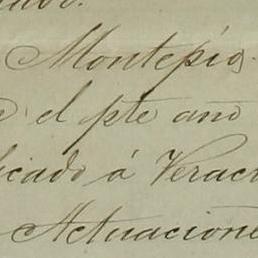 Montepío.
el pte año
icado á Veracr
Actuacione